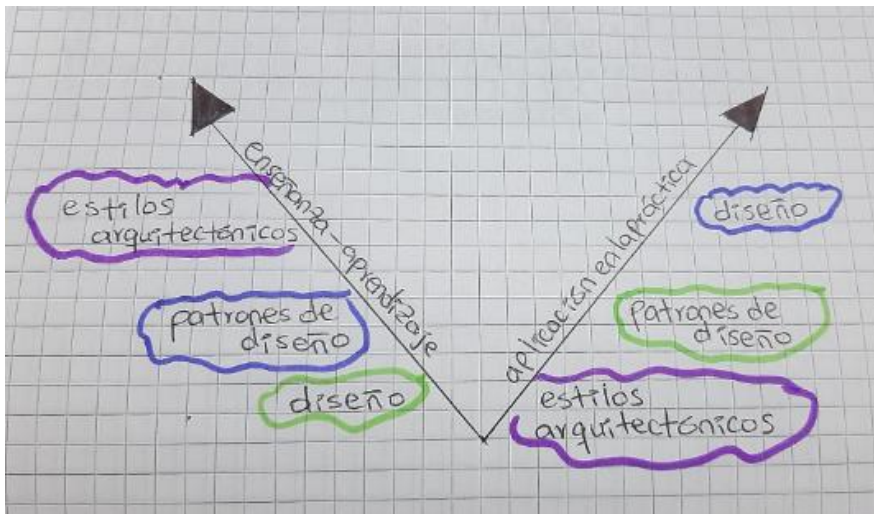 enseñanza - aprendizaje
estilos
arquitectónicos
patrones de
diseño
diseño
aplicación en la práctica
diseño
patrones de
diseño
estilos
arquitectónicos